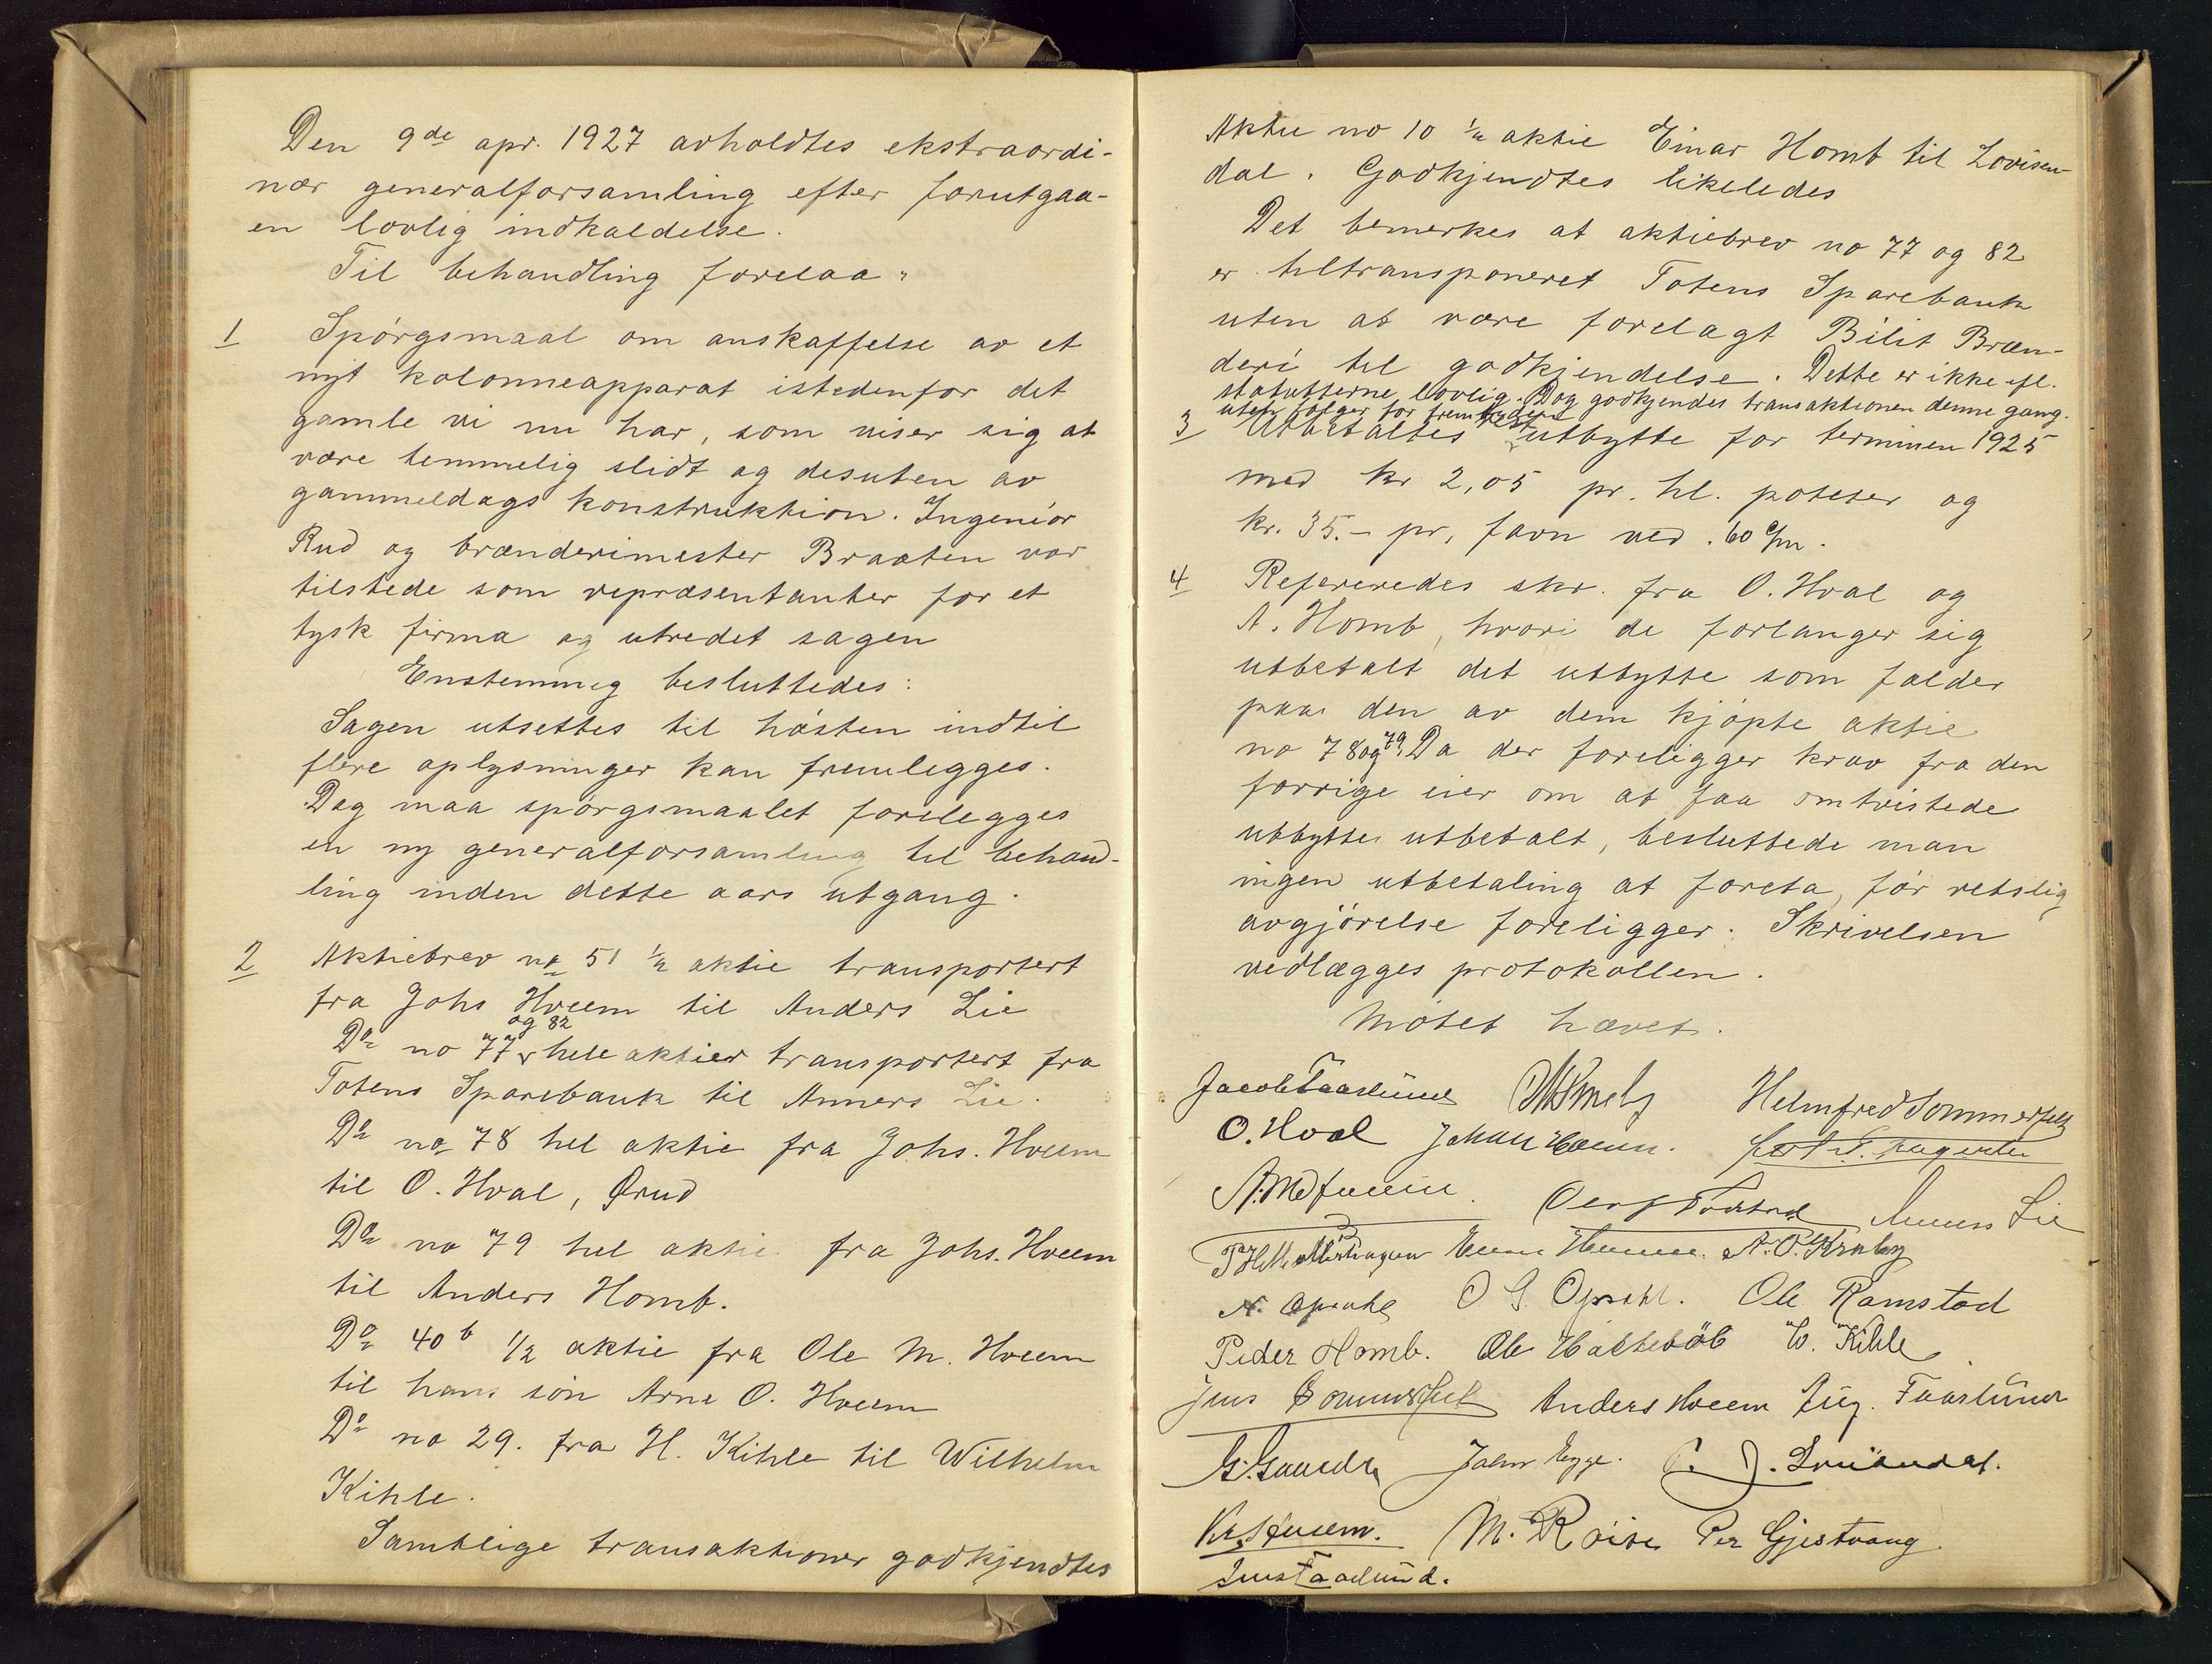 Den 9de apr. 1927 avholdtes ekstraordi-
nær generalforsamling efter forutgaa-
en lovlig indkaldelse.
Til behandling forelaa:
1 Spørgsmaal om anskaffelse av et
nyt kolonneapparat istedenfor det
gamle vi nu har, som viser sig at
være temmelig slidt og desuten av
gammeldags konstruktion. Ingeniør
Rud og brænderimester Braaten var
tilstede som repræsentanter for et
tysk firma og utredet sagen
Enstemmig besluttedes:
Sagen utsettes til høsten indtil
flere oplysninger kan fremlegges.
Dog maa spørgsmaalet forelegges
en ny generalforsamling til behand-
ling inden dette aars utgang.
2 Aktiebrev no 51 1/2 aktie transportert
fra Johs Hveem til Anders Lie
Do no 77 og 82 hele aktier transportert fra
Totens Sparebank til Anners Lie.
Do no 78 hel aktie fra Johs. Hveem
til O. Hval, Ørud
Do no 79 hel aktie fra Johs. Hveem
til Anders Homb.
Do 40 b 1/2 aktie fra Ole M. Hveem
til hans søn Arne O. Hveem
Do no 29. fra H. Kihle til Wilhelm
Kihle.
Samtlige transaktioner godkjendtes
Aktie no 10 1/2 aktie Einar Homb til Lovisen-
dal. Godkjendtes likeledes
Det bemerkes at aktiebrev no 77 og 82
er tiltransponeret Totens Sparebank
uten at være forelagt Bilit Bræn-
deri til godkjendelse. Dette er ikke efl.
statutterne lovlig. Dog godkjendes transaktionen denne gang.
uten følger for fremtiden
3 Utbetaltes rest utbytte for terminen 1925
med kr 2,05 pr. hl. poteter og
kr. 35.- pr, favn ved. 60 c/m.
4 Refereredes skr. fra O. Hval og
A. Homb, hvori de forlanger sig
utbetalt det utbytte som falder
paa den av dem kjøpte aktie
no 78 og 79. Da der foreligger krav fra den
forrige eier om at faa omtvistede
utbytte utbetalt, besluttede man
ingen utbetaling at foreta, før retslig
avgjørelse foreligger. Skrivelsen
vedlægges protokollen.
Møtet hævet.
Jacob Faarlund Helmfred Sommerfelt
O. Hval Johan
Anners Lie
A. O. Kraby
N. Opsahl O G. Opsahl. Ole Ramstad
Peder Homb. Ole W. Kihle
Jens Sommerfelt Anders Hveem Aug. Faarlund
John Egge.
M. Røise Per Gjestvang.
Jens Faarlund.